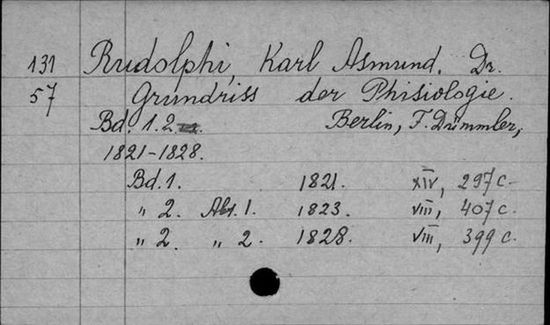 131 Rudolphi, Karl Asmund. Dr.
57 Grundriss der Phisiologie.
Bd. 1.2 Berlin, F. Dümmler,
1821-1828.
Bd. 1. 1821. XIV, 297 c.
" 2. Abt. 1. 1823. VIII, 407 c.
" 2. " 2. 1828. VIII, 399 c.